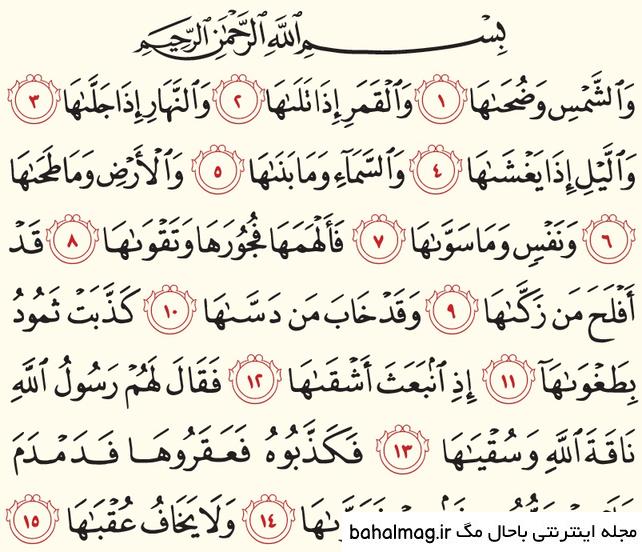 بِسْمِ ٱللَّهِ ٱلرَّحْمَٰنِ ٱلرَّحِيمِ
وَٱلشَّمْسِ وَضُحَىٰهَا ١ وَٱلْقَمَرِ إِذَا تَلَىٰهَا ٢ وَٱلنَّهَارِ إِذَا جَلَّىٰهَا ٣
وَٱلَّيْلِ إِذَا يَغْشَىٰهَا ٤ وَٱلسَّمَآءِ وَمَا بَنَىٰهَا ٥ وَٱلْأَرْضِ وَمَا طَحَىٰهَا
٦ وَنَفْسٍ وَمَا سَوَّىٰهَا ٧ فَأَلْهَمَهَا فُجُورَهَا وَتَقْوَىٰهَا ٨ قَدْ
أَفْلَحَ مَن زَكَّىٰهَا ٩ وَقَدْ خَابَ مَن دَسَّىٰهَا ١٠ كَذَّبَتْ ثَمُودُ
بِطَغْوَىٰهَآ ١١ إِذِ ٱنۢبَعَثَ أَشْقَىٰهَا ١٢ فَقَالَ لَهُمْ رَسُولُ ٱللَّهِ
نَاقَةَ ٱللَّهِ وَسُقْيَٰهَا ١٣ فَكَذَّبُوهُ فَعَقَرُوهَا فَدَمْدَمَ
١٤ وَلَا يَخَافُ عُقْبَٰهَا ١٥
مجله اینترنتی باحال مگ bahalmag.ir